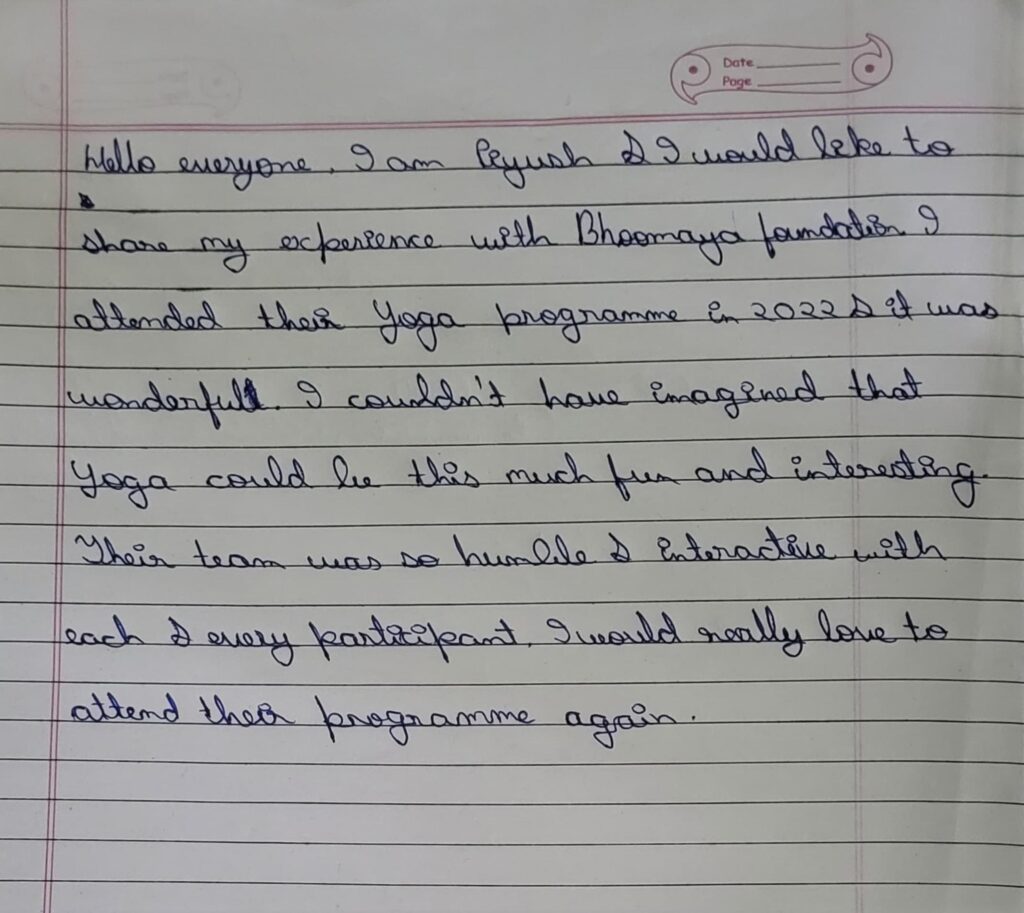 Date
Page
Hello everyone. I am Piyush & I would like to
share my experience with Bhoomaya foundation I
attended their Yoga programme in 2022 & it was
wonderful. I couldn't have imagined that
Yoga could be this much fun and interesting.
Their team was so humble & interactive with
each & every participant. I would really love to
attend their programme again.